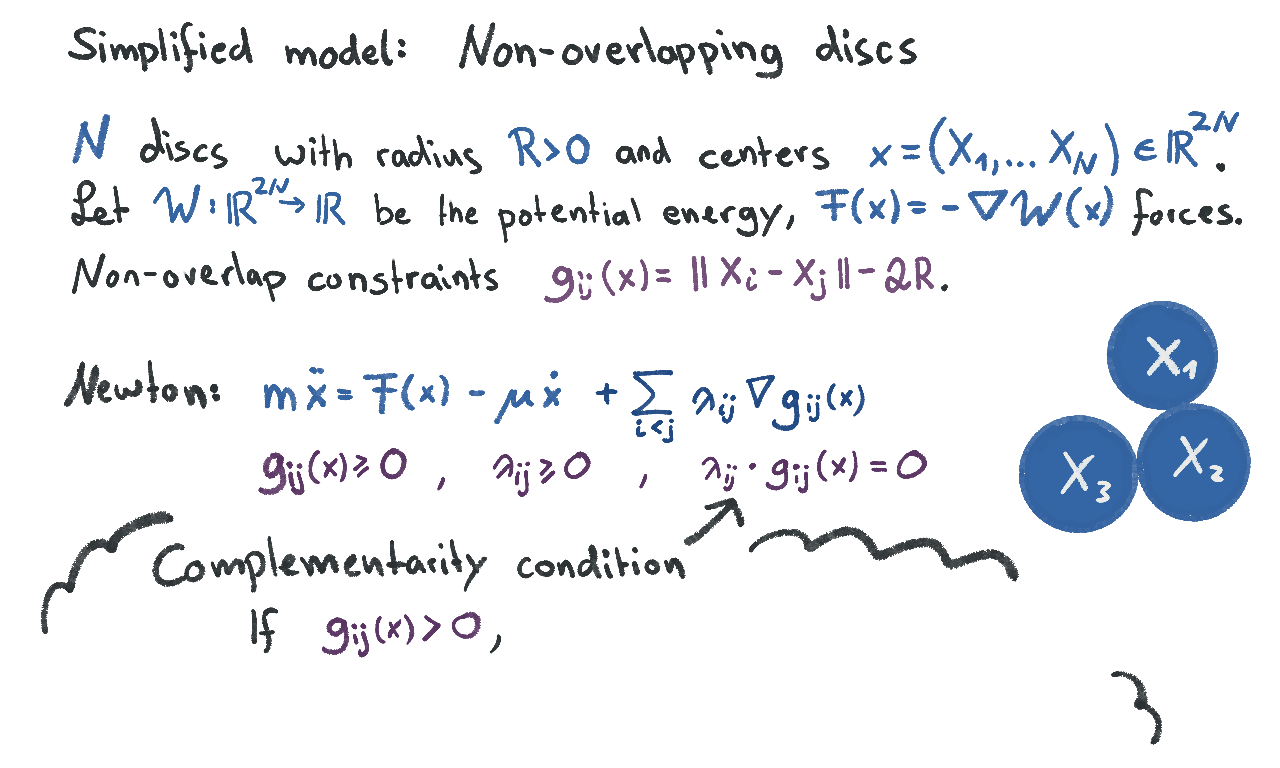 Simplified model: Non-overlapping discs
N discs with radius R>0 and centers x=(X₁,... X_N) ∈ ℝ²ᴺ.
Let W: ℝ²ᴺ → ℝ be the potential energy, F(x) = -∇W(x) forces.
Non-overlap constraints g_ij(x) = ‖X_i - X_j‖ - 2R.
X₁
Newton: mẍ = F(x) - μẋ + ∑_{i<j} λ_ij ∇g_ij(x)
g_ij(x) ≥ 0 , λ_ij ≥ 0 , λ_ij · g_ij(x) = 0
X₃ X₂
Complementarity condition
If g_ij(x) > 0,